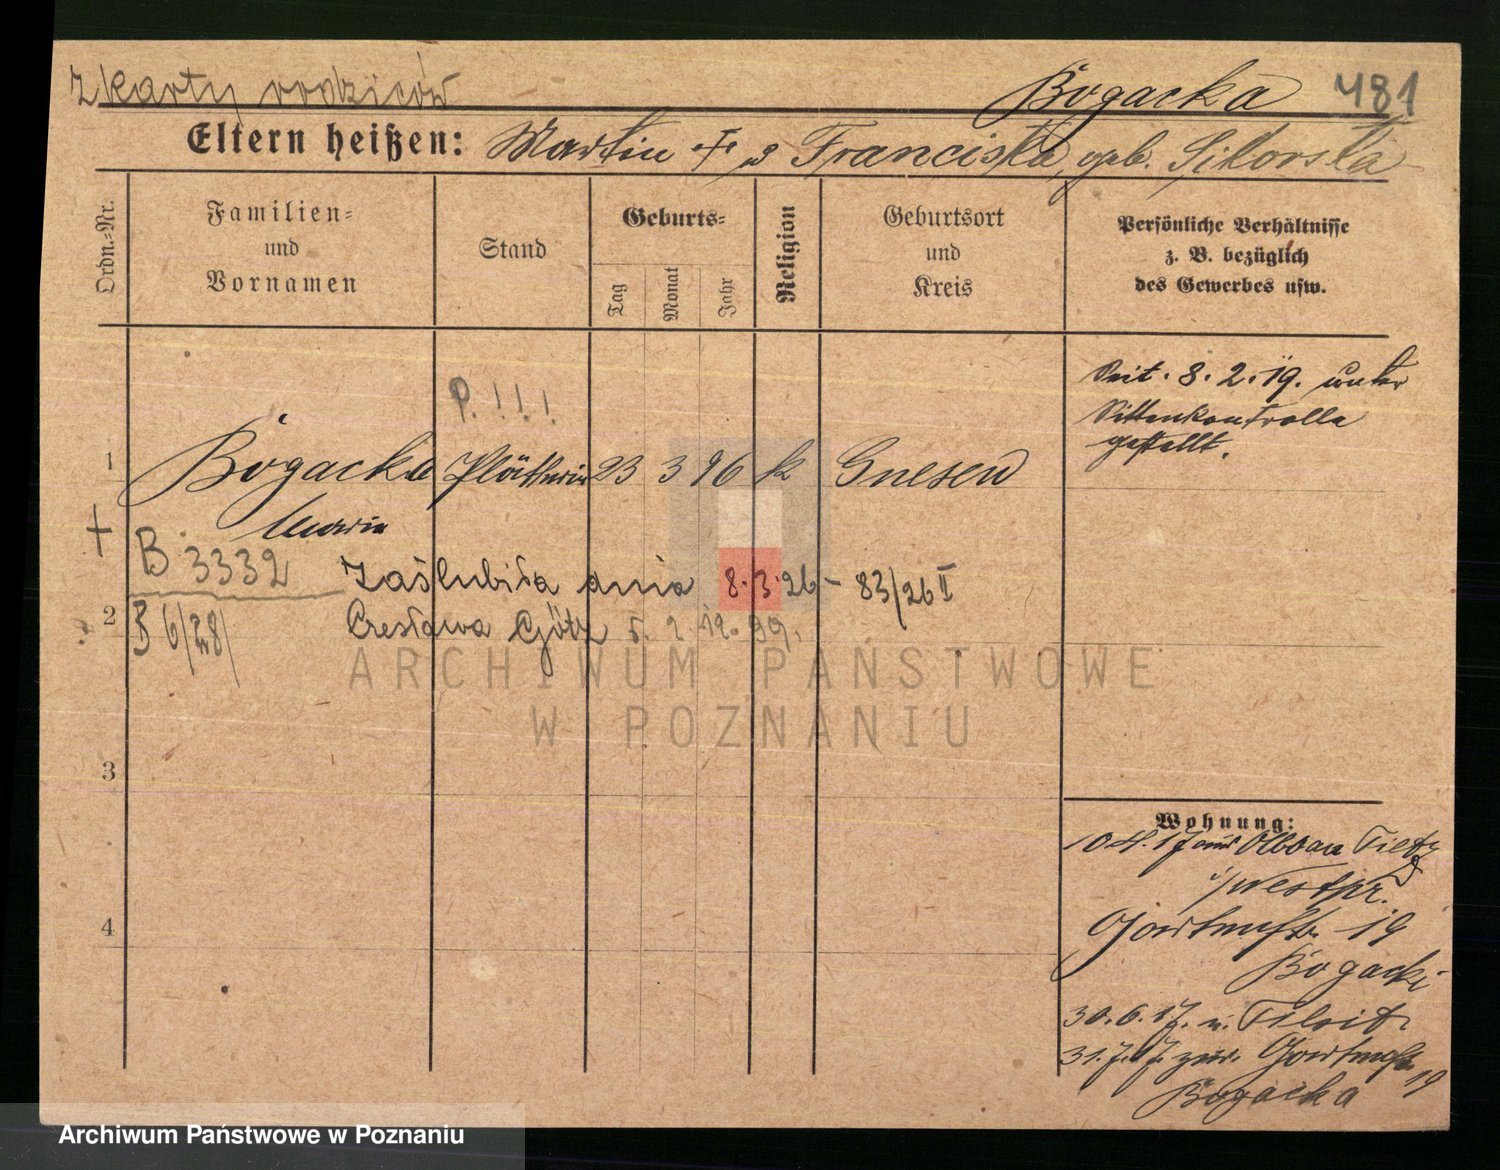 z karty rodziców
Bogacka 481
Eltern heißen: Martin † u Franciska, geb. Sikorska
Ordn.-Nr.
Familien-
und
Vornamen
Stand
Geburts-
Tag
Monat
Jahr
Religion
Geburtsort
und
Kreis
Persönliche Verhältnisse
z. B. bezüglich
des Gewerbes usw.
P. ! ! !
Seit. 8. 2. 19. unter
Sittenkontrolle
gestellt.
1 Bogacka Plätterin 23 3 96 k Gnesen
Maria
+ B 3332
Zaślubiła dnia 8.3.26 - 83/26 II
2 B 6/28
Czesława Götz 12. 99.
3
4
Wohnung:
10.4.17 aus Tietz
i/Westpr.
19
Bogacki
30.6.17. n. Tilsit
31.7.17. zur. 19
Bogacka
ARCHIWUM PAŃSTWOWE
W POZNANIU
Archiwum Państwowe w Poznaniu